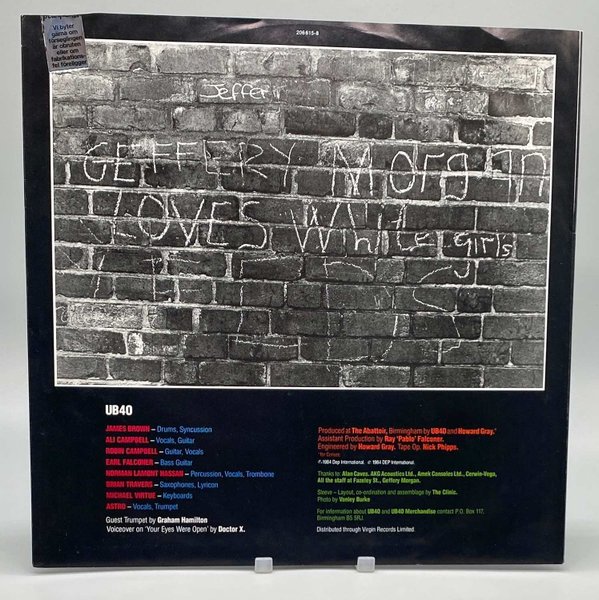 206 615-8
Vi byter
gärna om
förseglingen
är obruten
eller om
fabrikations-
fel föreligger
Jeffer
GEFFERY Morgan
LOVES White girls
UB40
JAMES BROWN – Drums, Syncussion
ALI CAMPBELL – Vocals, Guitar
ROBIN CAMPBELL – Guitar, Vocals
EARL FALCONER – Bass Guitar
NORMAN LAMONT HASSAN – Percussion, Vocals, Trombone
BRIAN TRAVERS – Saxophones, Lyricon
MICHAEL VIRTUE – Keyboards
ASTRO – Vocals, Trumpet
Guest Trumpet by Graham Hamilton
Voiceover on 'Your Eyes Were Open' by Doctor X.
Produced at The Abattoir, Birmingham by UB40 and Howard Gray.*
Assistant Production by Ray 'Pablo' Falconer.
Engineered by Howard Gray. Tape Op. Nick Phipps.
℗ 1984 Dep International. © 1984 DEP International.
Thanks to: Alan Caves, AKG Acoustics Ltd., Amek Consoles Ltd., Cerwin-Vega,
All the staff at Fazeley St., Geffery Morgan.
Sleeve – Layout, co-ordination and assemblage by The Clinic.
Photo by Vanley Burke
For information about UB40 and UB40 Merchandise contact P.O. Box 117,
Birmingham B5 5RJ.
Distributed through Virgin Records Limited.